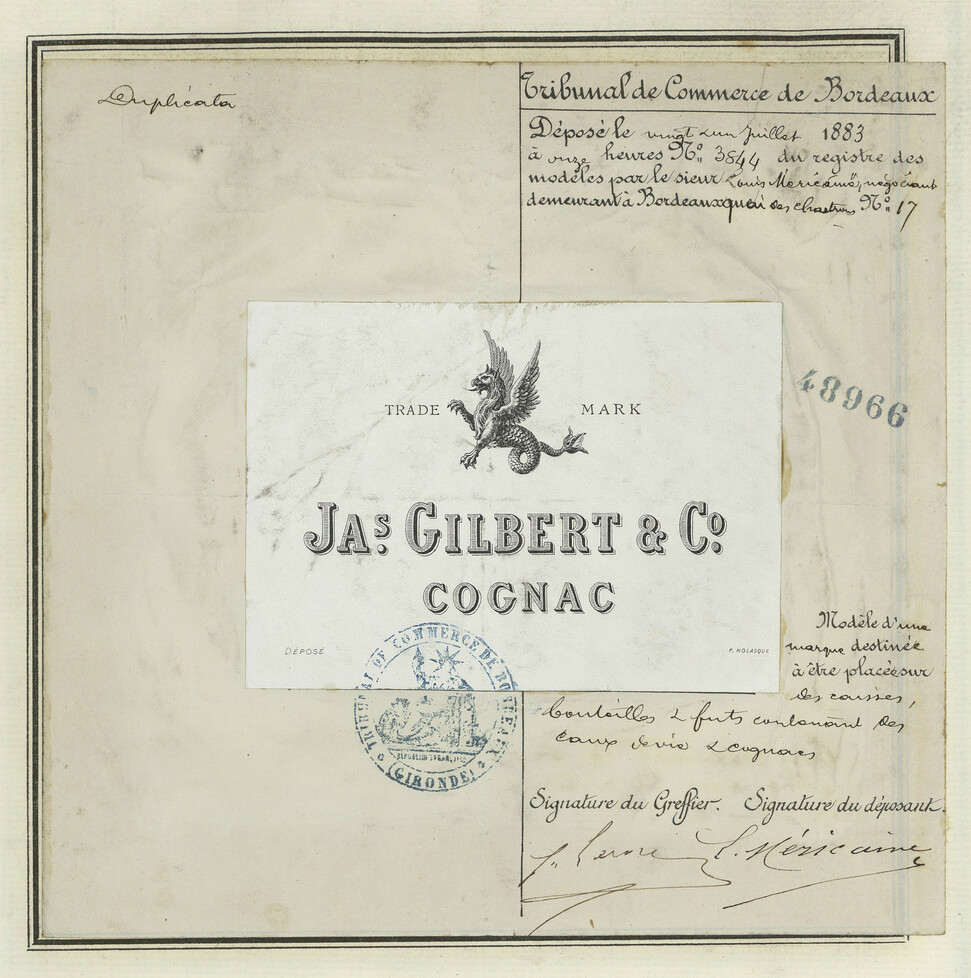 Duplicata
Tribunal de Commerce de Bordeaux
Déposé le vingt un Juillet 1883
à onze heures No. 3844 du registre des
modèles par le sieur Louis négociant
demeurant à Bordeaux quai des chartrons No. 17
TRADE MARK
48966
JAS. GILBERT & Co.
COGNAC
DÉPOSÉ
F. MOLASQUE
Modèle d'une
marque destinée
à être placée sur
des caisses,
bouteilles & futs contenant des
eaux de vie & cognacs
TRIBUNAL DE COMMERCE DE BORDEAUX
(GIRONDE)
Signature du Greffier. Signature du déposant.
L. Méricaine